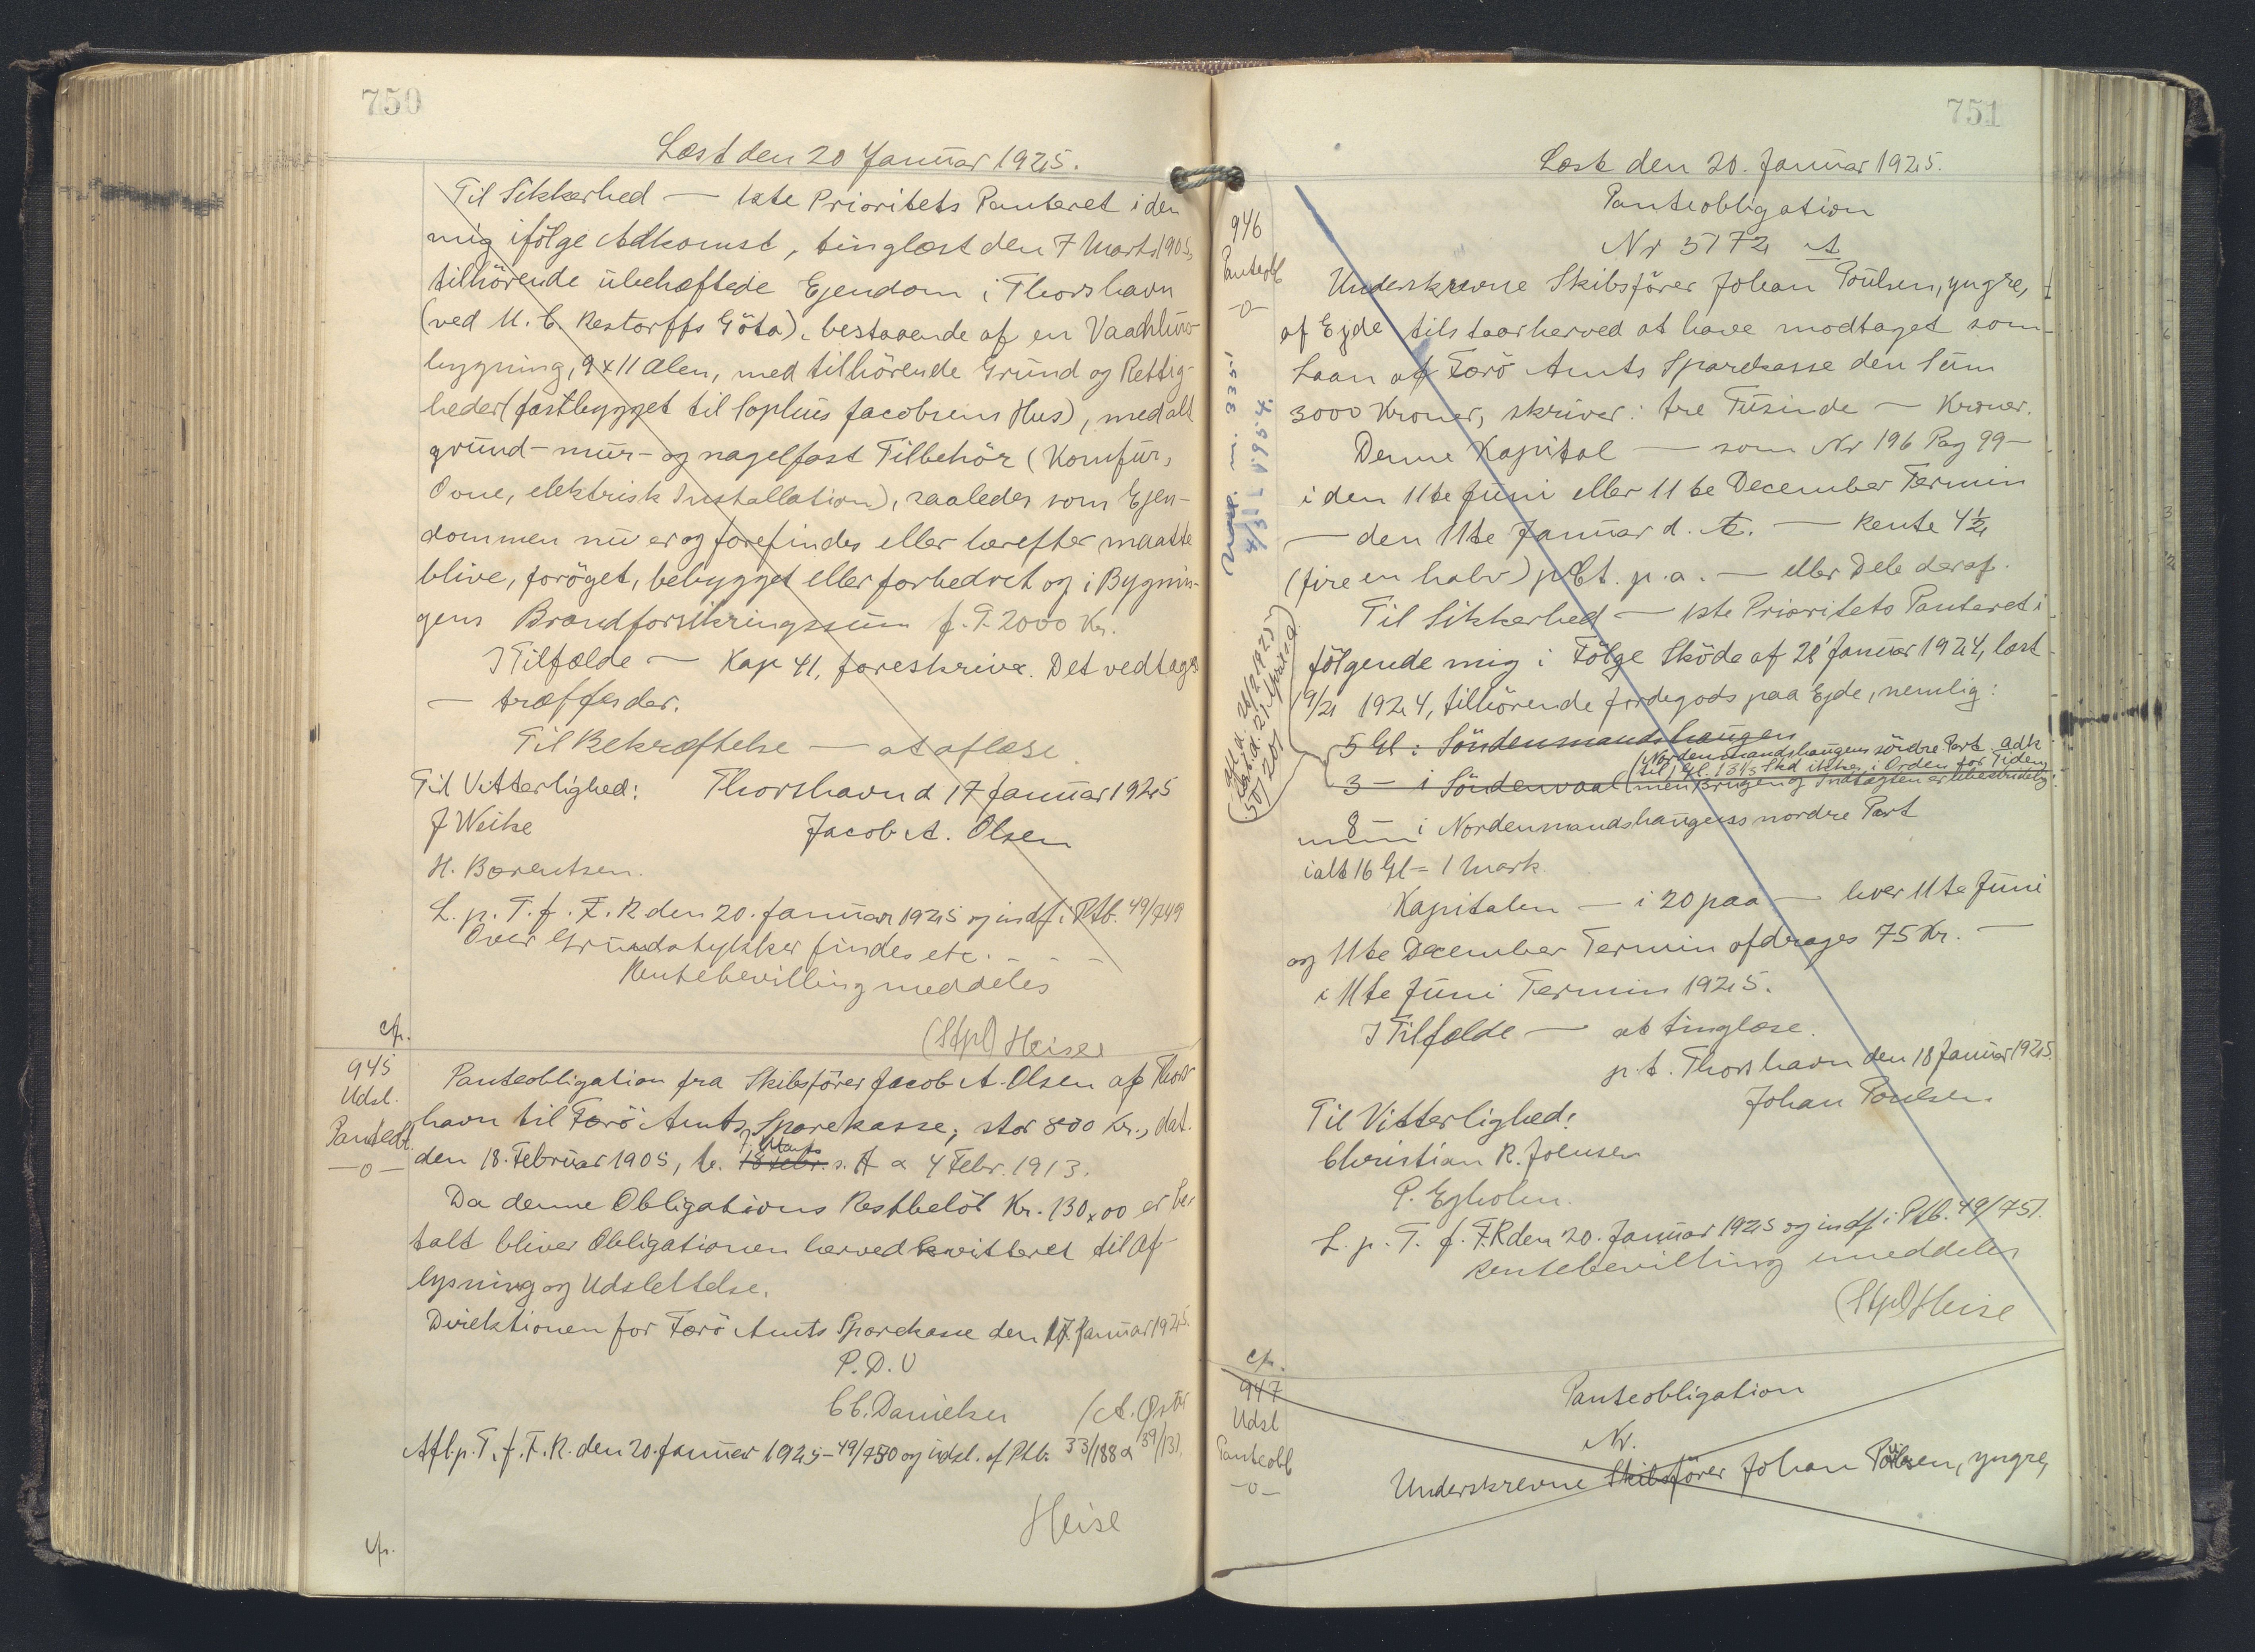 750
Læst den 20 Januar 1925.
Til Sikkerhed — 1ste Prioritets Panteret i den
mig ifölge Adkomst, tinglæst den 7 Marts 1905,
tilhörende ubehæftede Ejendom i Thorshavn
(ved M. C. Restorffs Göta), bestaaende af en Vaanhus-
bygning, 9 x 11 Alen, med tilhörende Grund og Rettig-
heder (fastbygget til Sophus Jacobsens Hus), med alt
grund- mur- og nagelfast Tilbehör (Komfur,
Ovne, elektrisk Installation), saaledes som Ejen-
dommen nu er og forefindes eller herefter maatte
blive, foröget, bebygget eller forbedret og i Bygnin-
gens Brandforsikringssum f. T. 2000 Kr.
I Tilfælde — Kap 41, foreskrive. Det vedtages
— træffes der.
Til Bekræftelse — at aflæse.
Til Vitterlighed: Thorshavn d 17 Januar 1925
J Weihe Jacob A. Olsen
H. Barentsen.
L. p. T. f. F. R den 20. Januar 1925 og indf. i Ptb. 49/749
Over Grundstykker findes etc. - - -
Rentebevilling meddeles
(Stpl) Heise
cfr.
945
Udsl.
Panteobl.
—o—
Panteobligation fra Skibsförer Jacob A. Olsen af Thors
havn til Færö Amts Sparekasse, stor 800 Kr., dat.
den 18. Februar 1905, l. 18 Febr. 7. Marts s. A & 4 Febr. 1913.
Da denne Obligations Restbelöb Kr. 130,00 er be
talt bliver Obligationen herved kvitteret til Af-
lysning og Udslettelse.
Direktionen for Færö Amts Sparekasse den 17. Januar 1925.
P. D. V
C C. Danielsen / A.
Afl. p. T. f. F. R. den 20. Januar 1925 - 49/750 og udsl. af Ptb. 33/188 & 39/131.
Heise
cfr.
751
Læst den 20. Januar 1925.
Panteobligation
Nr 5172 A
946
Panteobl
—o—
Underskrevne Skibsförer Johan Poulsen, yngre,
af Ejde tilstaar herved at have modtaget som
Laan af Færö Amts Sparekasse den Sum
3000 Kroner, skriver: tre Tusinde — Kroner.
Denne Kapital — som Nr 196 Pag 99 —
i den 11te Juni eller 11te December Termin
— den 11te Januar d. A. — Rente 4½
(fire en halv) pCt. p. a. — eller Dele deraf.
Til Sikkerhed — 1ste Prioritets Panteret i
fölgende mig i Fölge Sköde af 21 Januar 1924, læst
19/2 1924, tilhörende Jordegods paa Ejde, nemlig:
5 Gl i Söndenmandshaugen
(Nordenmandshaugens söndre Part. Adk
3 — i Söndenvaal til 1 Gl. 13½ Skd ikke i Orden for Tiden,
men Brugen og Indtægten er ubestridelig.
8 — i Nordenmandshaugens nordre Part
ialt 16 Gl = 1 Mark.
Kapitalen — i 20 paa — hver 11te Juni
og 11te December Termin afdrages 75 Kr. —
i 11te Juni Termin 1925.
I Tilfælde — at tinglæse.
p. t. Thorshavn den 18 Januar 1925.
Til Vitterlighed: Johan Poulsen
Christian R. Joensen
P. Ejholm.
L. p. T. f. F. R den 20. Januar 1925 og indf. i Ptb. 49/751.
Rentebevilling meddeles
(Stpl) Heise
cfr.
947
Udsl
Panteobl
—o—
Panteobligation
Nr.
Underskrevne Skibsförer Johan Poulsen, yngre,